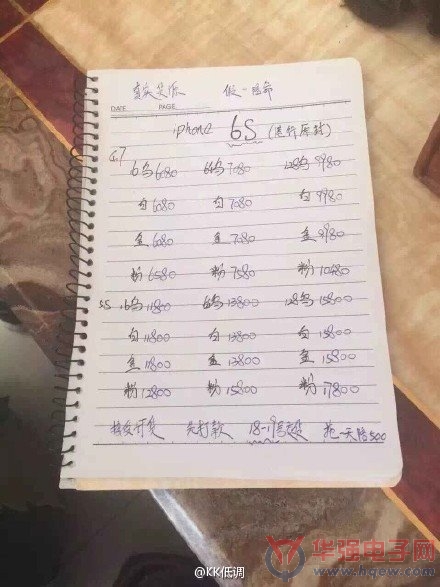 真实货源 假一陪命
DATE PAGE
iphone 6S (送行原封)
4.7
16鸟6080 64鸟7080 128鸟9980
白6080 白7080 白9980
金6080 金7080 金9980
粉6580 粉7580 粉10480
5.5 16鸟11800 64鸟13800 128鸟15800
白11800 白13800 白15800
金11800 金13800 金15800
粉12800 粉15800 粉17800
接受订货 先打款 18-19号发货 拖一天陪500
@KK低调
华强电子网
www.hqew.com